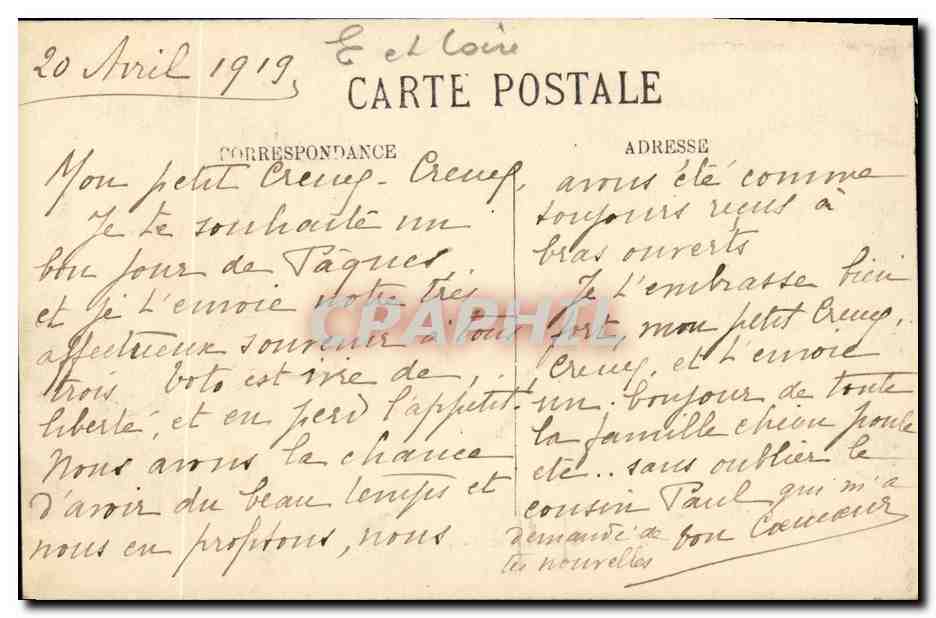 20 Avril 1919,
E et Loire
CARTE POSTALE
CORRESPONDANCE
ADRESSE
Mon petit Creuq-Creuq,
Je te souhaite un
bon jour de Pâques
et je t'envoie notre très
affectueux souvenir à tous
trois Toto est ivre de
liberté, et en perd l'appétit.
Nous avons la chance
d'avoir du beau temps et
nous en profitons, nous
avons été comme
toujours reçus à
bras ouverts
Je t'embrasse bien
fort, mon petit Creuq.
Creuq, et t'envoie
un bonjour de toute
la famille chien poule
etc.. sans oublier le
cousin Paul qui m'a
demandé de
tes nouvelles
ton
CPARAMA